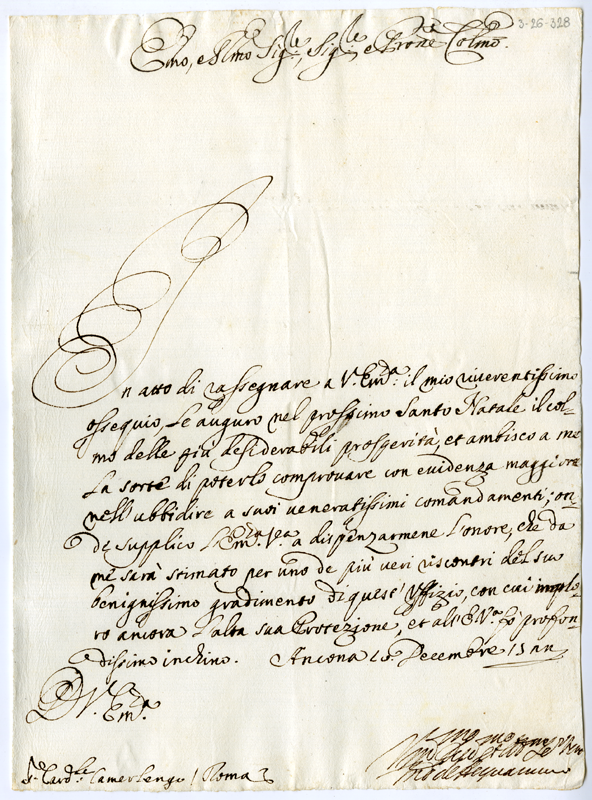 3-26-328
Emo, e Rmo Sigre, Sigre, e Prone Colmo.
In atto di rassegnare a V. Emza. il mio riverentissimo
ossequio, Le auguro nel prossimo Santo Natale il col-
mo delle più desiderabili prosperità, et ambisco a me
La sorte di poterlo comprovare con evidenza maggiore
nell'ubbidire a suoi veneratissimi comandamenti; on-
de supplico L'Emza. Va. a dispenzarmene L'onore, che da
me sarà stimato per uno de più veri riscontri del suo
benignissimo gradimento di quest'Uffizio, con cui implo-
ro ancora L'alta sua Protezione, et all'E. Va. fò profon-
dissimo inchino. Ancona 20. Decembre
D. V. Emza.
Sr. Cardle. Camerlengo / Roma